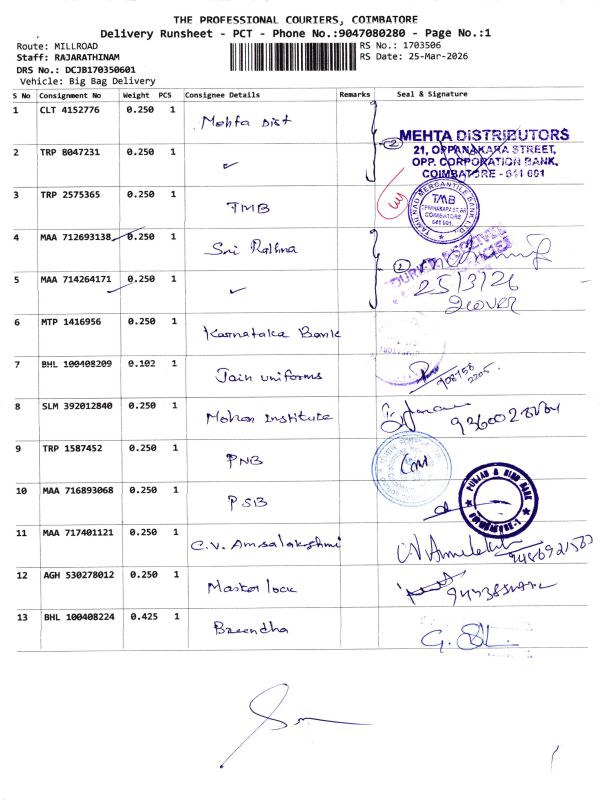 THE PROFESSIONAL COURIERS, COIMBATORE
Delivery Runsheet - PCT - Phone No.:9047080280 - Page No.:1
Route: MILLROAD
RS No.: 1703506
Staff: RAJARATHINAM
RS Date: 25-Mar-2026
DRS No.: DCJB170350601
Vehicle: Big Bag Delivery
S No Consignment No Weight PCS Consignee Details Remarks Seal & Signature
1 CLT 4152776 0.250 1 Mehta Dist
2
MEHTA DISTRIBUTORS
21, OPPANAKARA STREET,
OPP. CORPORATION BANK,
COIMBATORE - 641 001
2 TRP 8047231 0.250 1 ✓
3 TRP 2575365 0.250 1 TMB
TAMILNAD MERCANTILE BANK LTD.
TMB
OPPANAKARA ST. BR.
COIMBATORE
641 001.
4 MAA 712693138 0.250 1 Sri Rathna
2
25/3/26
5 MAA 714264171 0.250 1 ✓
6 MTP 1416956 0.250 1 Karnataka Bank
7 BHL 100408209 0.102 1 Jain uniforms
8 SLM 392012840 0.250 1 Mohan Institute
9 TRP 1587452 0.250 1 PNB
10 MAA 716893068 0.250 1 PSB
PUNJAB & SIND BANK
COIMBATORE-1
11 MAA 717401121 0.250 1 C.V. Amsalakshmi
12 AGH 530278012 0.250 1 Master lock
13 BHL 100408224 0.425 1 Breendha